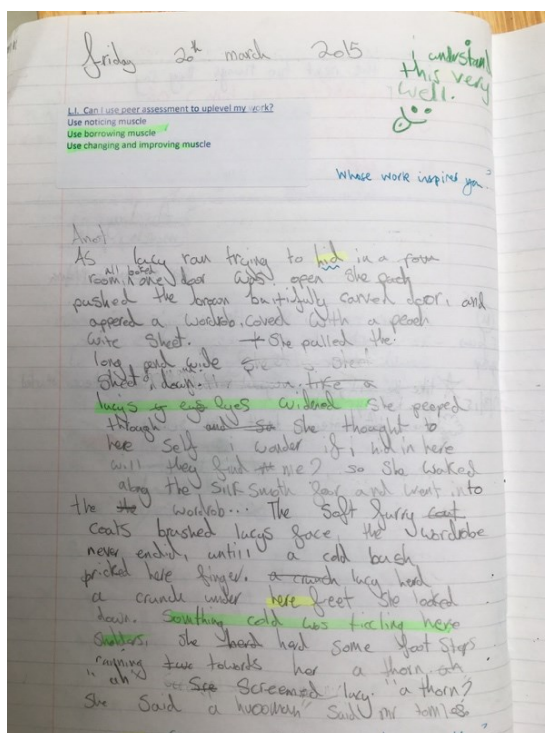 Friday 20th march 2015
I understand
this very
well.
L.I. Can I use peer assessment to uplevel my work?
Use noticing muscle
Use borrowing muscle
Use changing and improving muscle
Whose work inspired you?
As lucy ran trying to hid in a
room in one door was open she
all locked
pushed the carved door, and
appered a wordrob, coved with a peach
wite sheet. She pulled the
long wide
sheet down. like a
lucys eyes widered she peeped
through and so she thought to
here self i wonder if i hid in here
will they find me? so she walked
along the silk smoth floor and went into
the wordrob... The soft furry coat
coats brushed lucys face, the wardrobe
never endid, untill a cold bush
pricked here finger. a crunch lucy herd
a crunch under here feet she looked
down. Somthing cold was ticcling here
she herd hard some foot steps
towards her a thorn ah
"ah" Screemed lucy. "a thorn?
She Said a hoooman" Said mr tomles